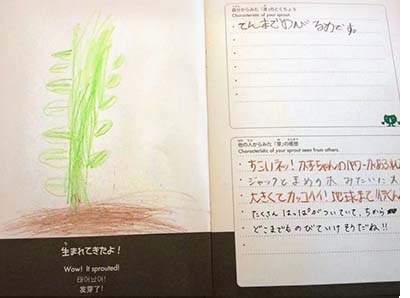 生まれてきたよ!
Wow! It sprouted!
태어났어!
发芽了!
自分からみた「芽」のとくちょう
Characteristic of your sprout
てんまでのびるめです。
他の人からみた「芽」の感想
Characteristic of your sprout seen from others.
すごいネッ! かすちゃんのパワーがあふれ
ジャックとまめの木 みたいに大
大きくてカッコイイ! 地球まで
たくさん はっぱがついていて、ちから
どこまでものびていけそうだね!!